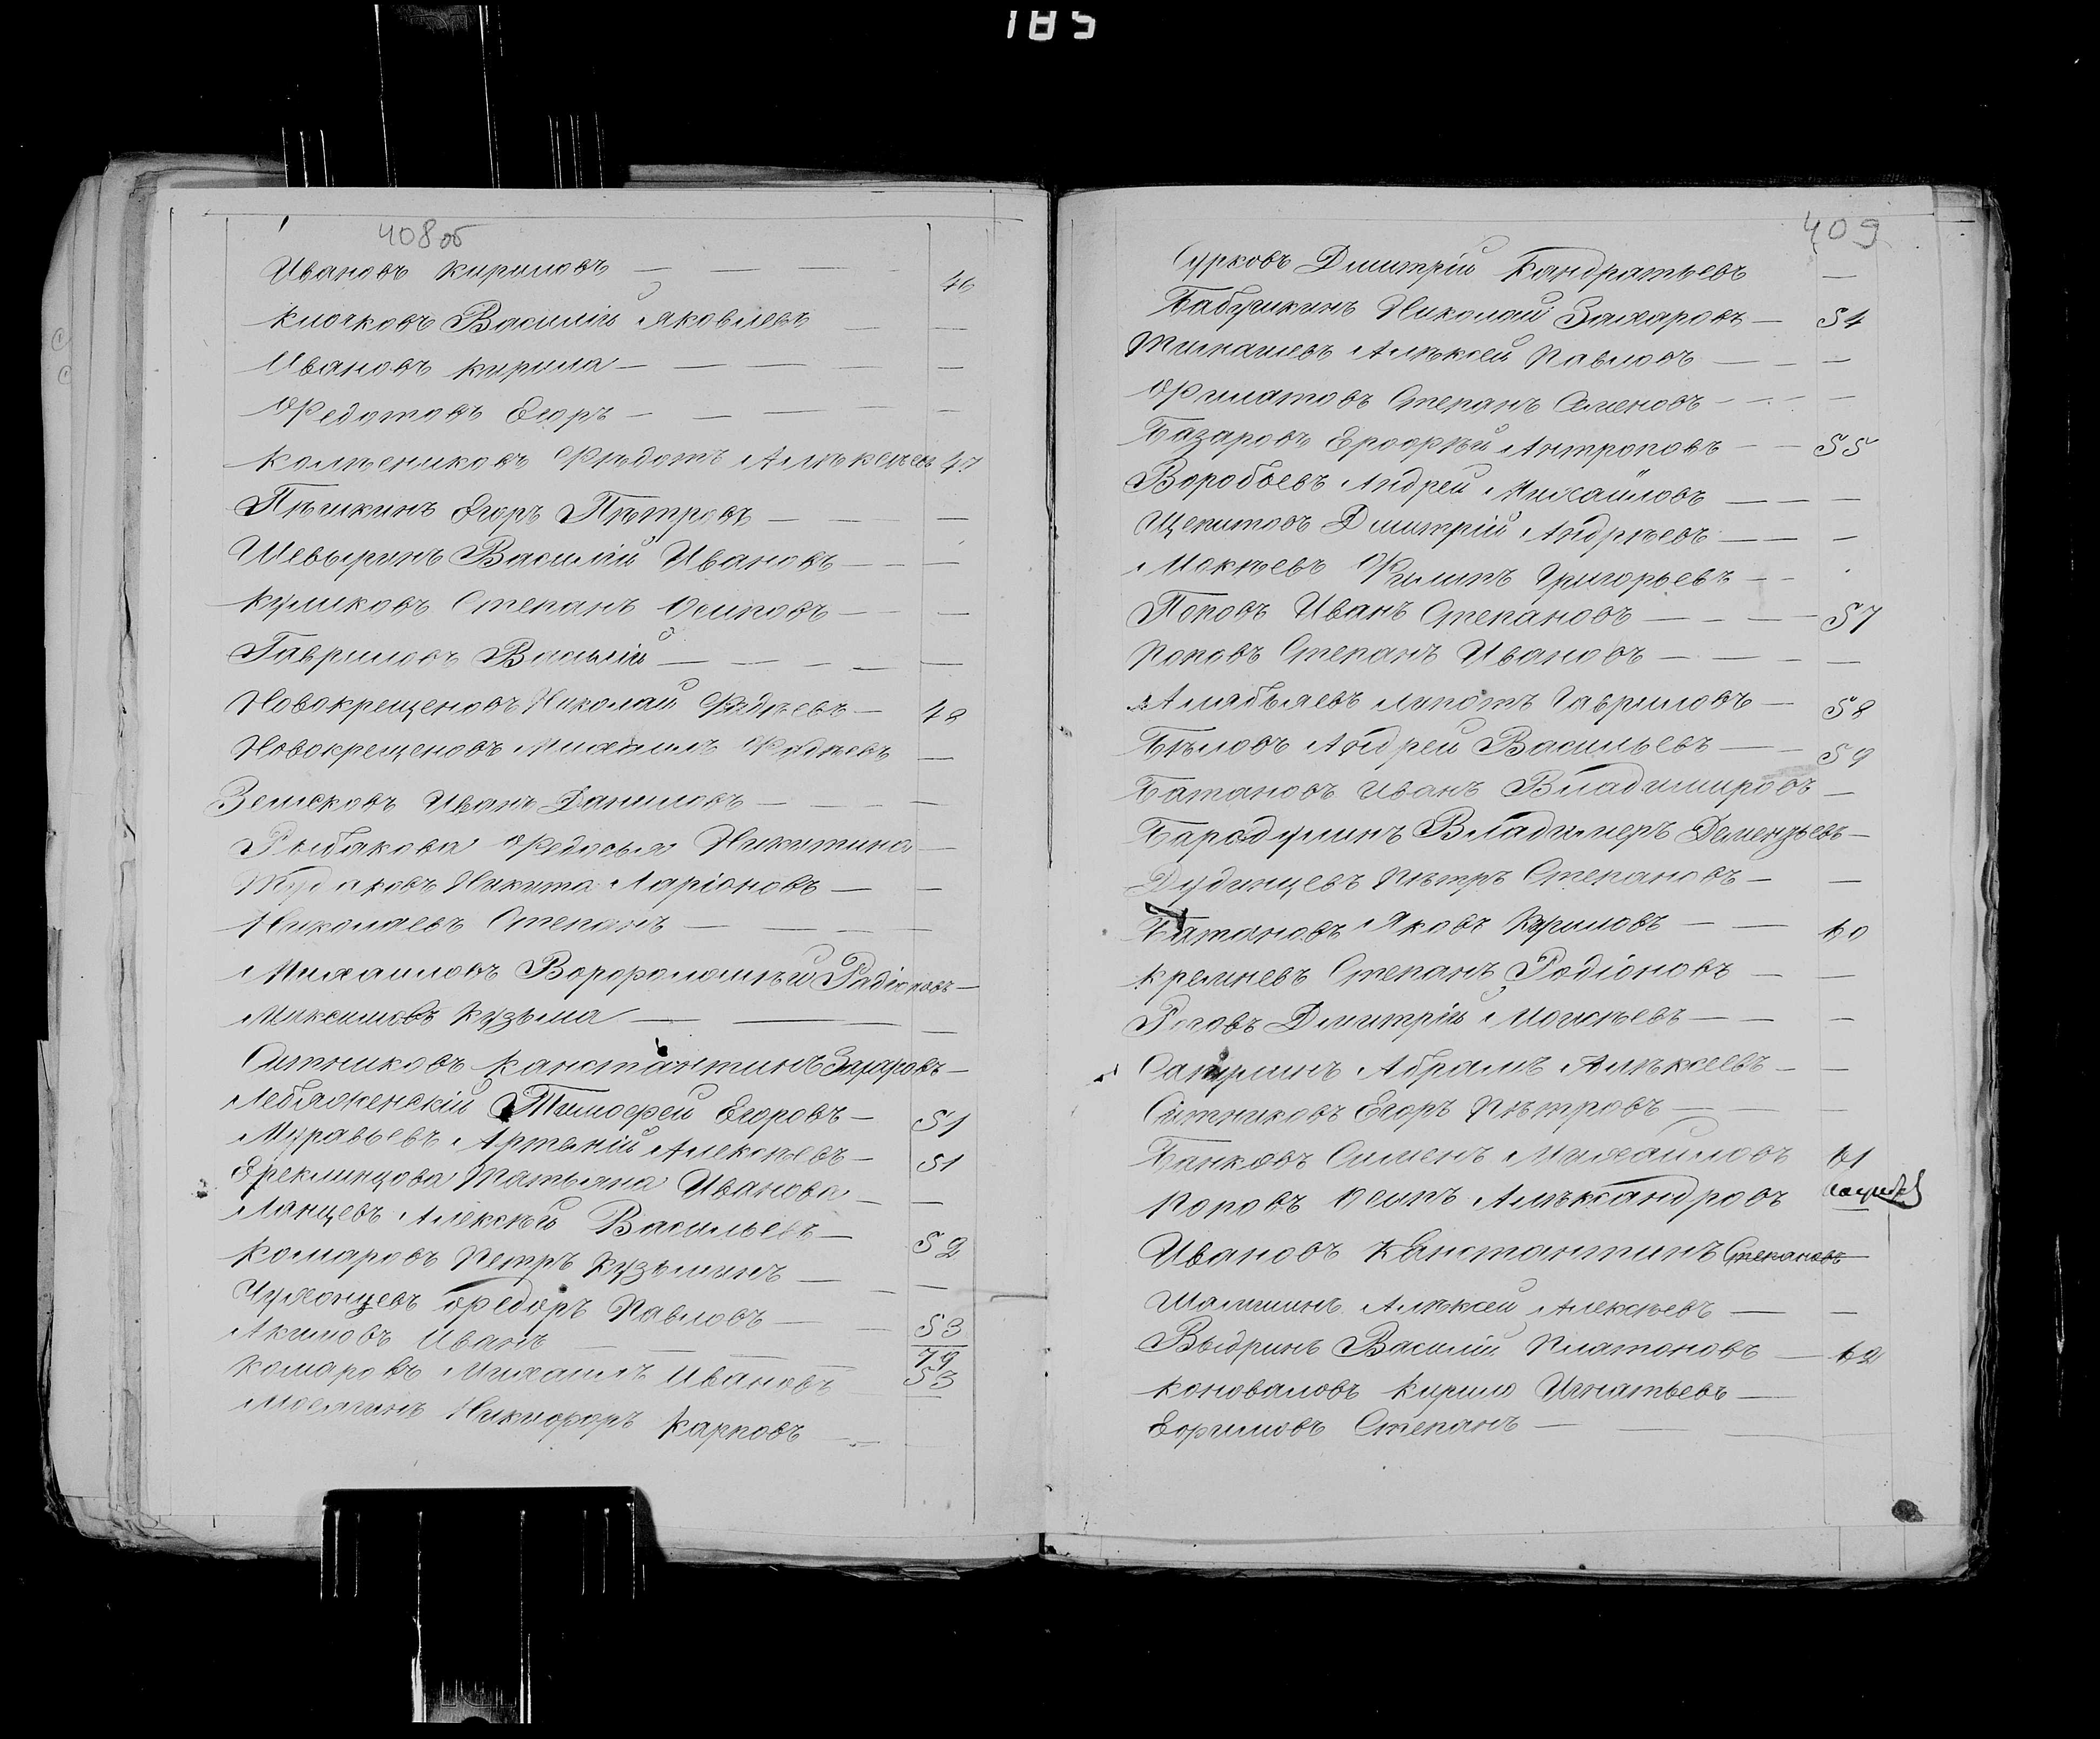 185
408 об
Ивановъ Кириловъ — — — — 46
Клочковъ Василій Яковлевъ — —
Ивановъ Кирила — — — — —
Федотовъ Егоръ — — — — —
Колѣсниковъ Фѣдотъ Алѣксѣевъ 47
Пѣшкинъ Егоръ Пѣтровъ — — —
Шевыринъ Василій Ивановъ — — —
Куликовъ Степанъ Осиповъ — — —
Гавриловъ Василій — — — — —
Новокрещеновъ Николай Фадѣевъ — 48
Новокрещеновъ Михаилъ Фадѣевъ —
Земсковъ Иванъ Даниловъ — — —
Рыбакова Федосья Никитина —
Никита Ларіоновъ — —
Николаевъ Степанъ — — — —
Михаиловъ Ворфоломѣй Радіоновъ —
Максимовъ Кузьма — — — —
Ситниковъ Канстантинъ Захаровъ —
Лебяженскій Тимофей Егоровъ — 51
Муравьевъ Артемій Алексѣевъ — 51
Ереклинцова Татьяна Иванова — —
Лянцевъ Алексѣй Васильевъ — 52
Комаровъ Петръ Кузьминъ — — —
Чухонцевъ Федоръ Павловъ — — 53
Акимовъ Иванъ — — — — 79
Комаровъ Михаилъ Ивановъ 53
Никифоръ Карповъ — —
409
Сурковъ Дмитрій Кандратьевъ —
Бабушкинъ Николай Захаровъ — 54
Алѣксей Павловъ — — —
Филатовъ Степанъ Семеновъ — — —
Базаровъ Ерофѣй Антроповъ — — 55
Воробьевъ Андрей Михайловъ — — —
Щепитовъ Дмитрій Андрѣевъ — — —
Мокѣевъ Филипъ Григорьевъ — —
Поповъ Иванъ Степановъ — — — — 57
Поповъ Степанъ Ивановъ — — — —
Алябьевъ Гавриловъ — 58
Бѣловъ Андрей Васильевъ — — 59
Батановъ Иванъ Владимировъ —
Барадулинъ Владимеръ Дементьевъ —
Дудинцевъ Пѣтръ Степановъ — —
Батановъ Яковъ Кириловъ — — 60
Кремневъ Степанъ Радіоновъ — —
Роговъ Дмитрій Моисѣевъ — — —
Абрамъ Алѣксеевъ — —
Ситниковъ Егоръ Пѣтровъ — — —
Банковъ Сименъ Михайловъ 61
Поповъ Осипъ Алѣксандровъ
Ивановъ Канстантинъ Степановъ
Алѣксей Алексѣевъ — —
Выдринъ Василій Платоновъ — 62
Коноваловъ Кирило Игнатьевъ —
Ефимовъ Степанъ — — —